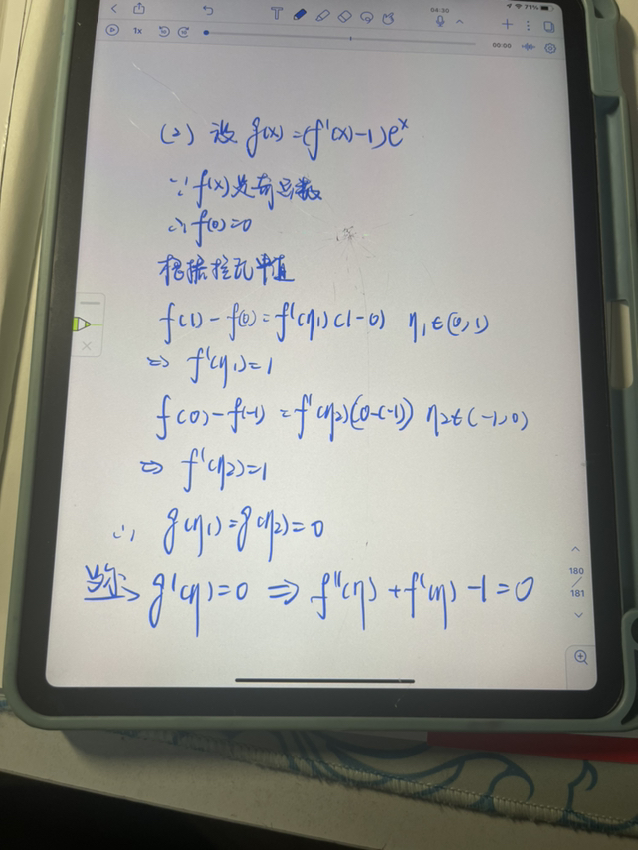 04:30
71%
1x
00:00
(2) 设 g(x)=(f'(x)-1)e^x
∵ f(x)是奇函数
∴ f(0)=0
根据拉氏中值
f(1)-f(0)=f'(η₁)(1-0) η₁∈(0,1)
⇒ f'(η₁)=1
f(0)-f(-1)=f'(η₂)(0-(-1)) η₂∈(-1,0)
⇒ f'(η₂)=1
∴ g(η₁)=g(η₂)=0
g'(η)=0 ⇒ f''(η)+f'(η)-1=0
180
/
181